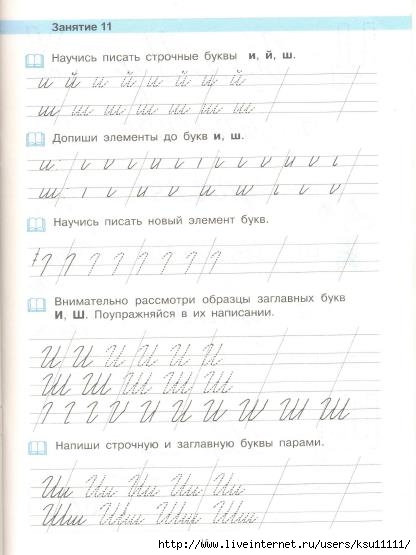 Занятие 11
Научись писать строчные буквы и, й, ш.
и й и й и й и й
ш ш ш ш ш ш ш ш
Допиши элементы до букв и, ш.
Научись писать новый элемент букв.
Внимательно рассмотри образцы заглавных букв
И, Ш. Поупражняйся в их написании.
И И И И И И
Ш Ш Ш Ш Ш
Напиши строчную и заглавную буквы парами.
Ии Ии Ии Ии Ии
Шш Шш Шш Шш Шш
http://www.liveinternet.ru/users/ksu11111/